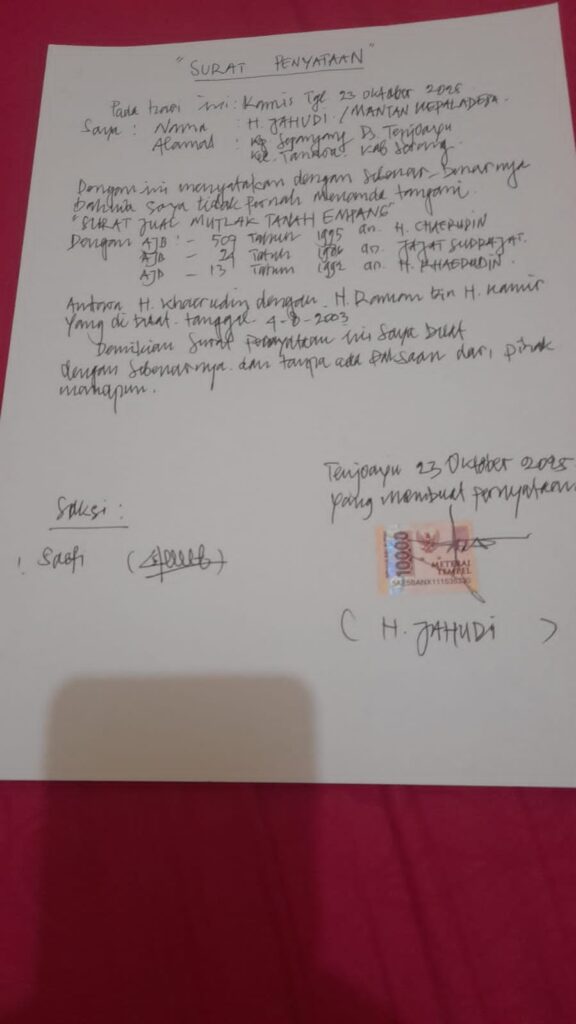 "SURAT PENYATAAN"
Pada hari ini: Kamis Tgl 23 Oktober 2025
Saya : Nama : H. JAHUDI / MANTAN KEPALA DESA.
Alamat : Kp. Ds. Tenjoayu
Kec. Tanara. Kab Serang.
Dengan ini menyatakan dengan sebenar-benarnya
bahwa saya tidak pernah menanda tangani.
"SURAT JUAL MUTLAK TANAH EMPANG"
Dengan AJB : - 509 Tahun 1995 an. H. CHAERUDIN
AJB - Tahun an. JAJAT SUDRAJAT.
AJB - 13 Tahum 1992 an. H. KHAERUDIN.
Antara H. Khaerudin dengan. H. Raman bin H. Kamir
yang di buat. tanggal 4-8-2003
Demikian Surat pernyataan ini saya buat
dengan sebenarnya. dan tanpa ada paksaan dari pihak
manapun.
Tenjoayu 23 Oktober 2025.
yang membuat pernyataan
Saksi :
1. ( )
10000
METERAI
TEMPEL
( H. JAHUDI )